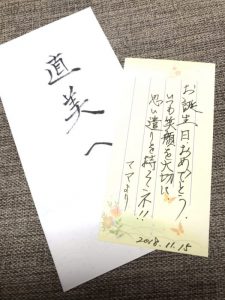 直美へ
お誕生日おめでとう.
いつも笑顔を大切に
思い遣りを持ってネ!!
ママより
2018.11.15